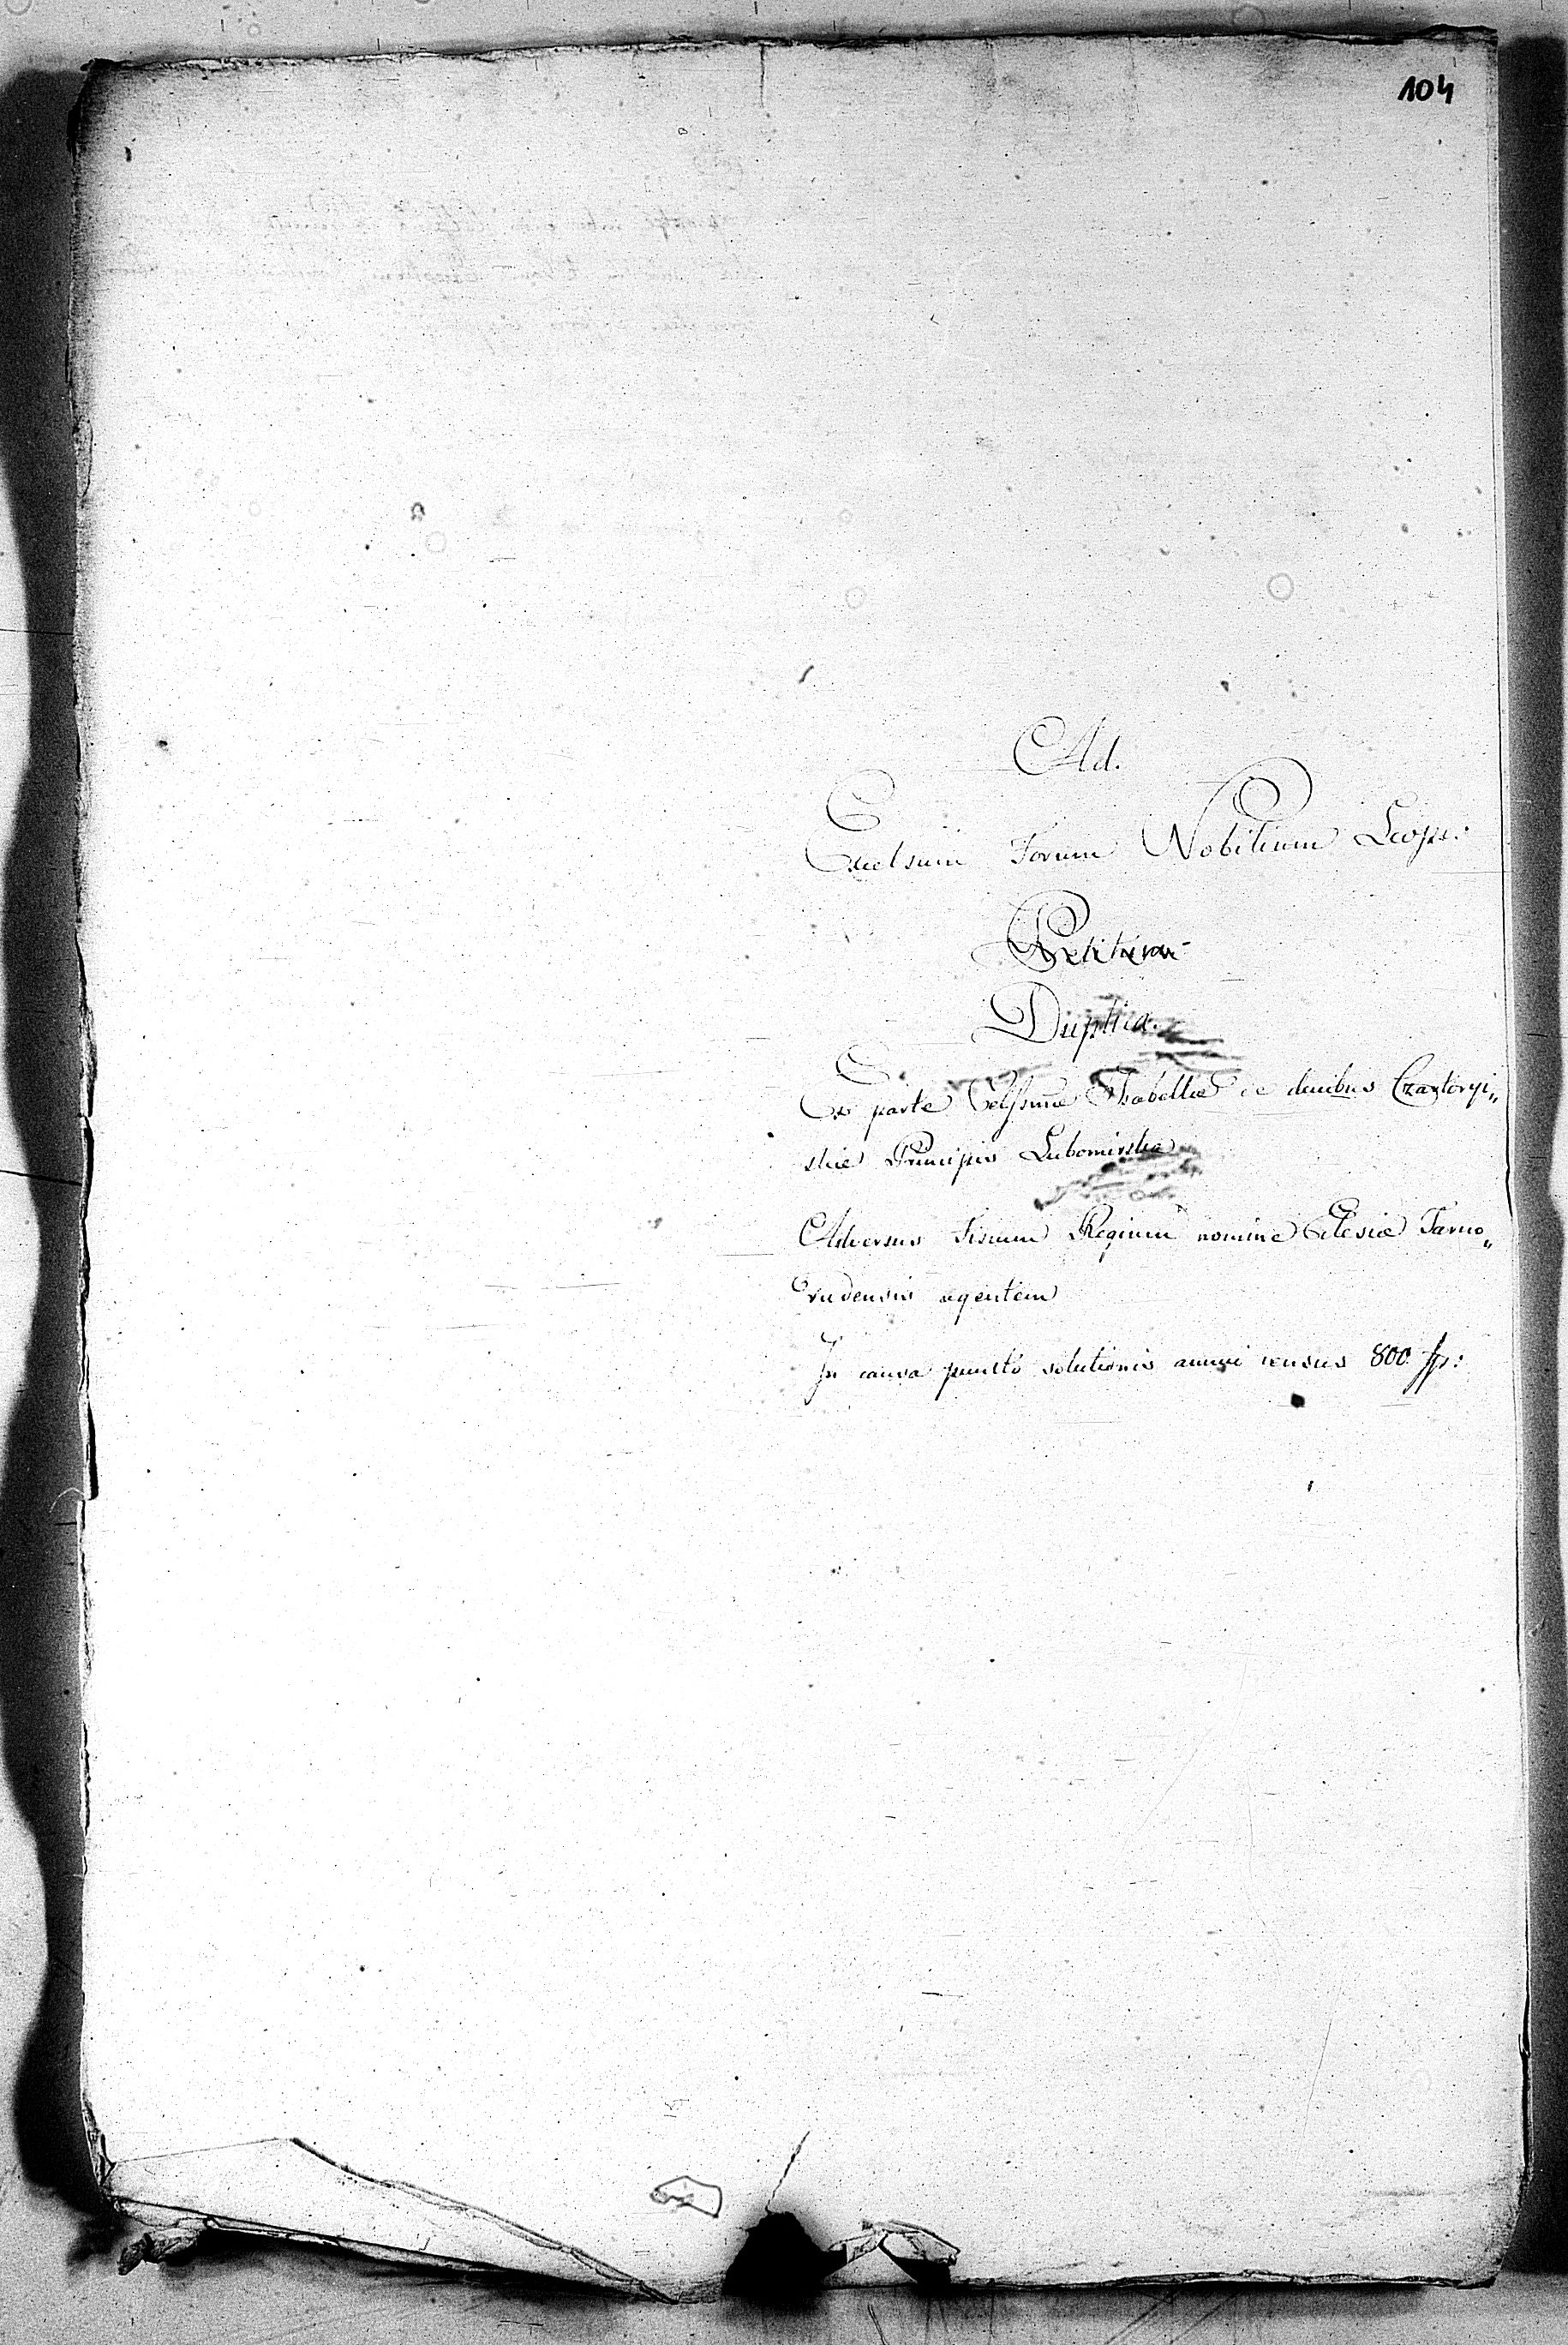 104
Ad.
Excelsum Forum Nobilium Leop:
Petitum
Duplica.
Ex parte Celssmae Isabellae de ducibus Czartoryi„
skie Principis Lubomirska
Adversus Fiscum Regium nomine Eclesiae Tarno„
grudensis agentem
In causa puncto solutionis annui census 800 fp: